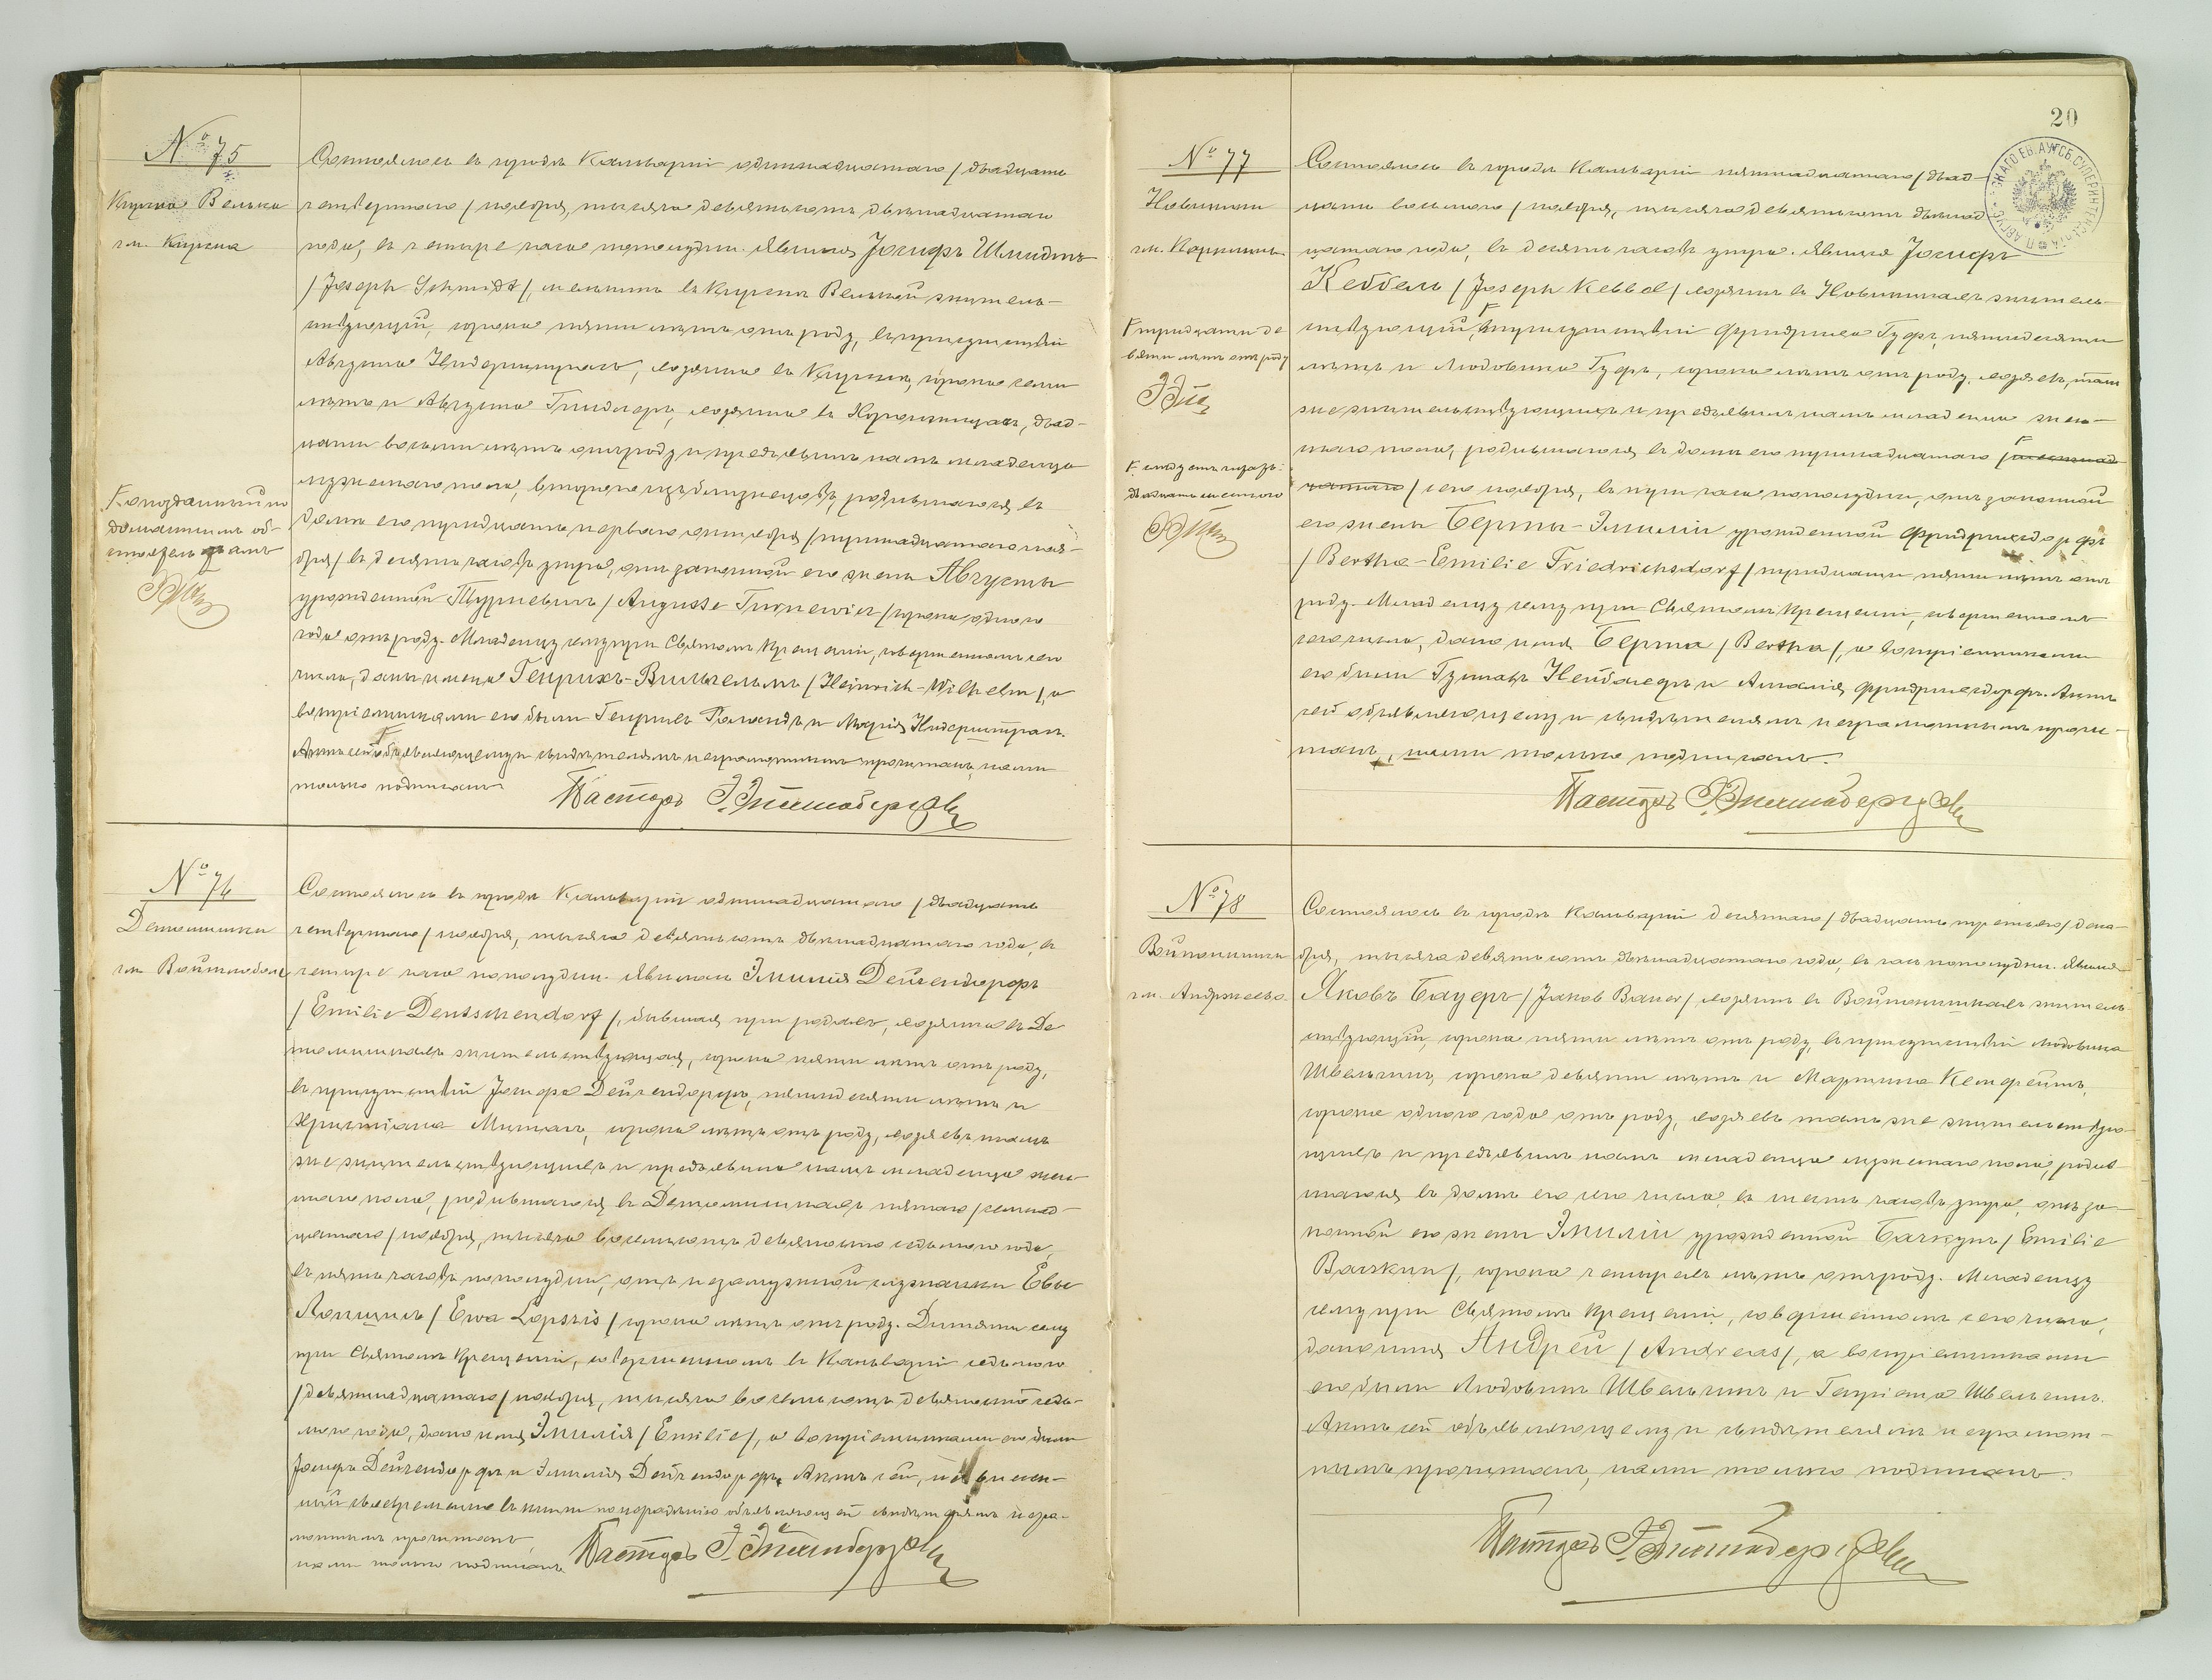 № 75
Кирсна Велька
гм. Кирсна
Состоялось въ городѣ Кальваріи одиннадцатаго /двадцать
четвертаго/ ноября, тысяча девятьсотъ двѣнадцатаго
года, въ четыре часа пополудни. Явился Іосифъ Шмидтъ
/Joseph Schmidt/, мельникъ въ Кирснѣ Велькой житель-
ствующій, сорока пяти лѣтъ отъ роду, въ присутствіи
Августа Нидерштраса, хозяина въ Кирснѣ, сорока семи
лѣтъ и Августа, хозяина въ, двад-
цати восьми лѣтъ отъ роду и предъявилъ намъ младенца
мужескаго пола, второго изъ близнецовъ, родившагося въ
домѣ его тридцать перваго октября /тринадцатаго ноя-
бря/ въ десять часовъ утра, отъ законной его жены Августы
урожденной Турневичъ /Auguste Turnewicz/ сорока одного
года отъ роду. Младенцу сему при Святомъ Крещеніи, совершенномъ сего
числа, даны имена Генрихъ-Вильгельмъ /Heinrich-Wilhelm/, а
воспріемниками его были Генрихъ и Марія Нидерштрасъ.
Актъ сей объявляющему и свидѣтелямъ неграмотнымъ прочитанъ, нами
только подписанъ
Г опозданный по
домашнимъ об-
стоятельствамъ
Пасторъ
№ 76
Состоялось въ городѣ Кальваріи одиннадцатаго /двадцать
четвертаго/ ноября, тысяча девятьсотъ двѣнадцатаго года, въ
четыре часа пополудни. Явилась Эмилія Дейчендорфъ
/Emilie Deutschendorf/, бывшая при родахъ, хозяйка въ Де-
жительствующая, сорока пяти лѣтъ отъ роду,
въ присутствіи Іосифа Дейчендорфъ, пятидесяти лѣтъ и
Христіана, сорока лѣтъ отъ роду, хозяевъ тамъ
же жительствующихъ и предъявила намъ младенца жен-
скаго пола, родившагося въ пятаго /семнад-
цатаго/ ноября, тысяча восемьсотъ девяносто седьмого года,
въ пять часовъ пополудни, отъ незамужной служанки Евы
Лопшисъ /Ewa Lopszis/ сорока лѣтъ отъ роду. Дитяти сему
при Святомъ Крещеніи, совершенномъ въ Кальваріи седьмого
/девятнадцатаго/ ноября, тысяча восемьсотъ девяносто седь-
мого года, дано имя Эмилія /Emilie/, а воспріемниками его были
Іосифъ Дейчендорфъ и Эмилія Дейчендорфъ. Актъ сей, не внесен-
ный своевременно въ книги по нерадѣнію объявляющей свидѣтелямъ негра-
мотнымъ прочитанъ,
нами только подписанъ
Пасторъ
20
№ 77
Состоялось въ городѣ Кальваріи пятнадцатаго /двад-
цать восьмого/ ноября, тысяча девятьсотъ двѣнад-
цатаго года, въ десять часовъ утра. Явился Іосифъ
Кеббель /Joseph Kebbel/ хозяинъ въ житель-
ствующій, Г въ присутствіи Фридриха Гуфъ, пятидесяти
лѣтъ и Людовика Гуфъ, сорока лѣтъ отъ роду, хозяевъ, тамъ
же жительствующихъ и предъявилъ намъ младенца жен-
скаго пола, родившагося въ домѣ его тринадцатаго
/ сего ноября, въ три часа пополудни, отъ законной
его жены Берты-Эмиліи урожденной Фридрихсдорфъ
/Bertha-Emilie Friedrichsdorf/ тридцати пяти лѣтъ отъ
роду. Младенцу сему при Святомъ Крещеніи, совершенномъ
сего числа, дано имя Берта /Bertha/, а воспріемниками
его были Густавъ и Амалія Фридрихсдорфъ. Актъ
сей объявляющему и свидѣтелямъ неграмотнымъ прочи-
танъ, нами только подписанъ.
Г тридцати де-
вяти лѣтъ отъ роду
Г слѣдуетъ читать:
двадцать шестого
Пасторъ
№ 78
гм. Андржеево
Состоялось въ городѣ Кальваріи десятаго /двадцать третьяго/ дека-
бря, тысяча девятьсотъ двѣнадцатаго года, въ часъ пополудни. Явился
Яковъ Бауеръ /Jakob Bauer/ хозяинъ въ житель-
ствующій, сорока пяти лѣтъ отъ роду, въ присутствіи Людовика
сорока девяти лѣтъ и Мартина
сорока одного года отъ роду, хозяевъ тамъ же жительствую-
щихъ и предъявилъ намъ младенца мужескаго пола, родив-
шагося въ домѣ его сего числа, въ шесть часовъ утра, отъ за-
конной его жены Эмиліи урожденной Бачкунъ /Emilie
Baczkun/, сорока четырехъ лѣтъ отъ роду. Младенцу
сему при Святомъ Крещеніи, совершенномъ сего числа,
дано имя Андрей /Andreas/, а воспріемниками
его были Людовикъ и
Актъ сей объявляющему и свидѣтелямъ неграмот-
нымъ прочитанъ, нами только подписанъ.
Пасторъ